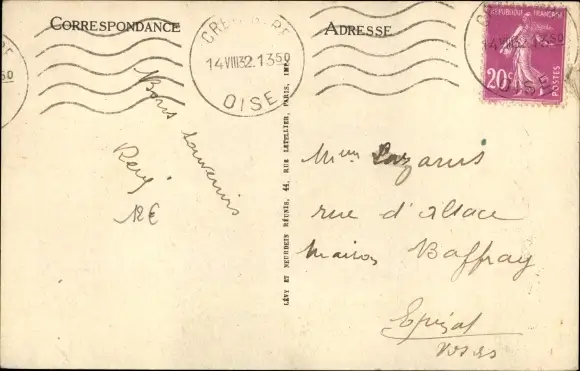 CORRESPONDANCE
ADRESSE
14 VIII 32. 13 50
OISE
14 VIII 32. 13 50
OISE
REPUBLIQUE FRANÇAISE
20c
POSTES
Bons souvenirs
René
RE
LÉVY ET NEURDEIN RÉUNIS, 44, RUE LETELLIER, PARIS, IMP.
Lazarus
rue d'Alsace
Maison Baffray
Epinal
Vosges